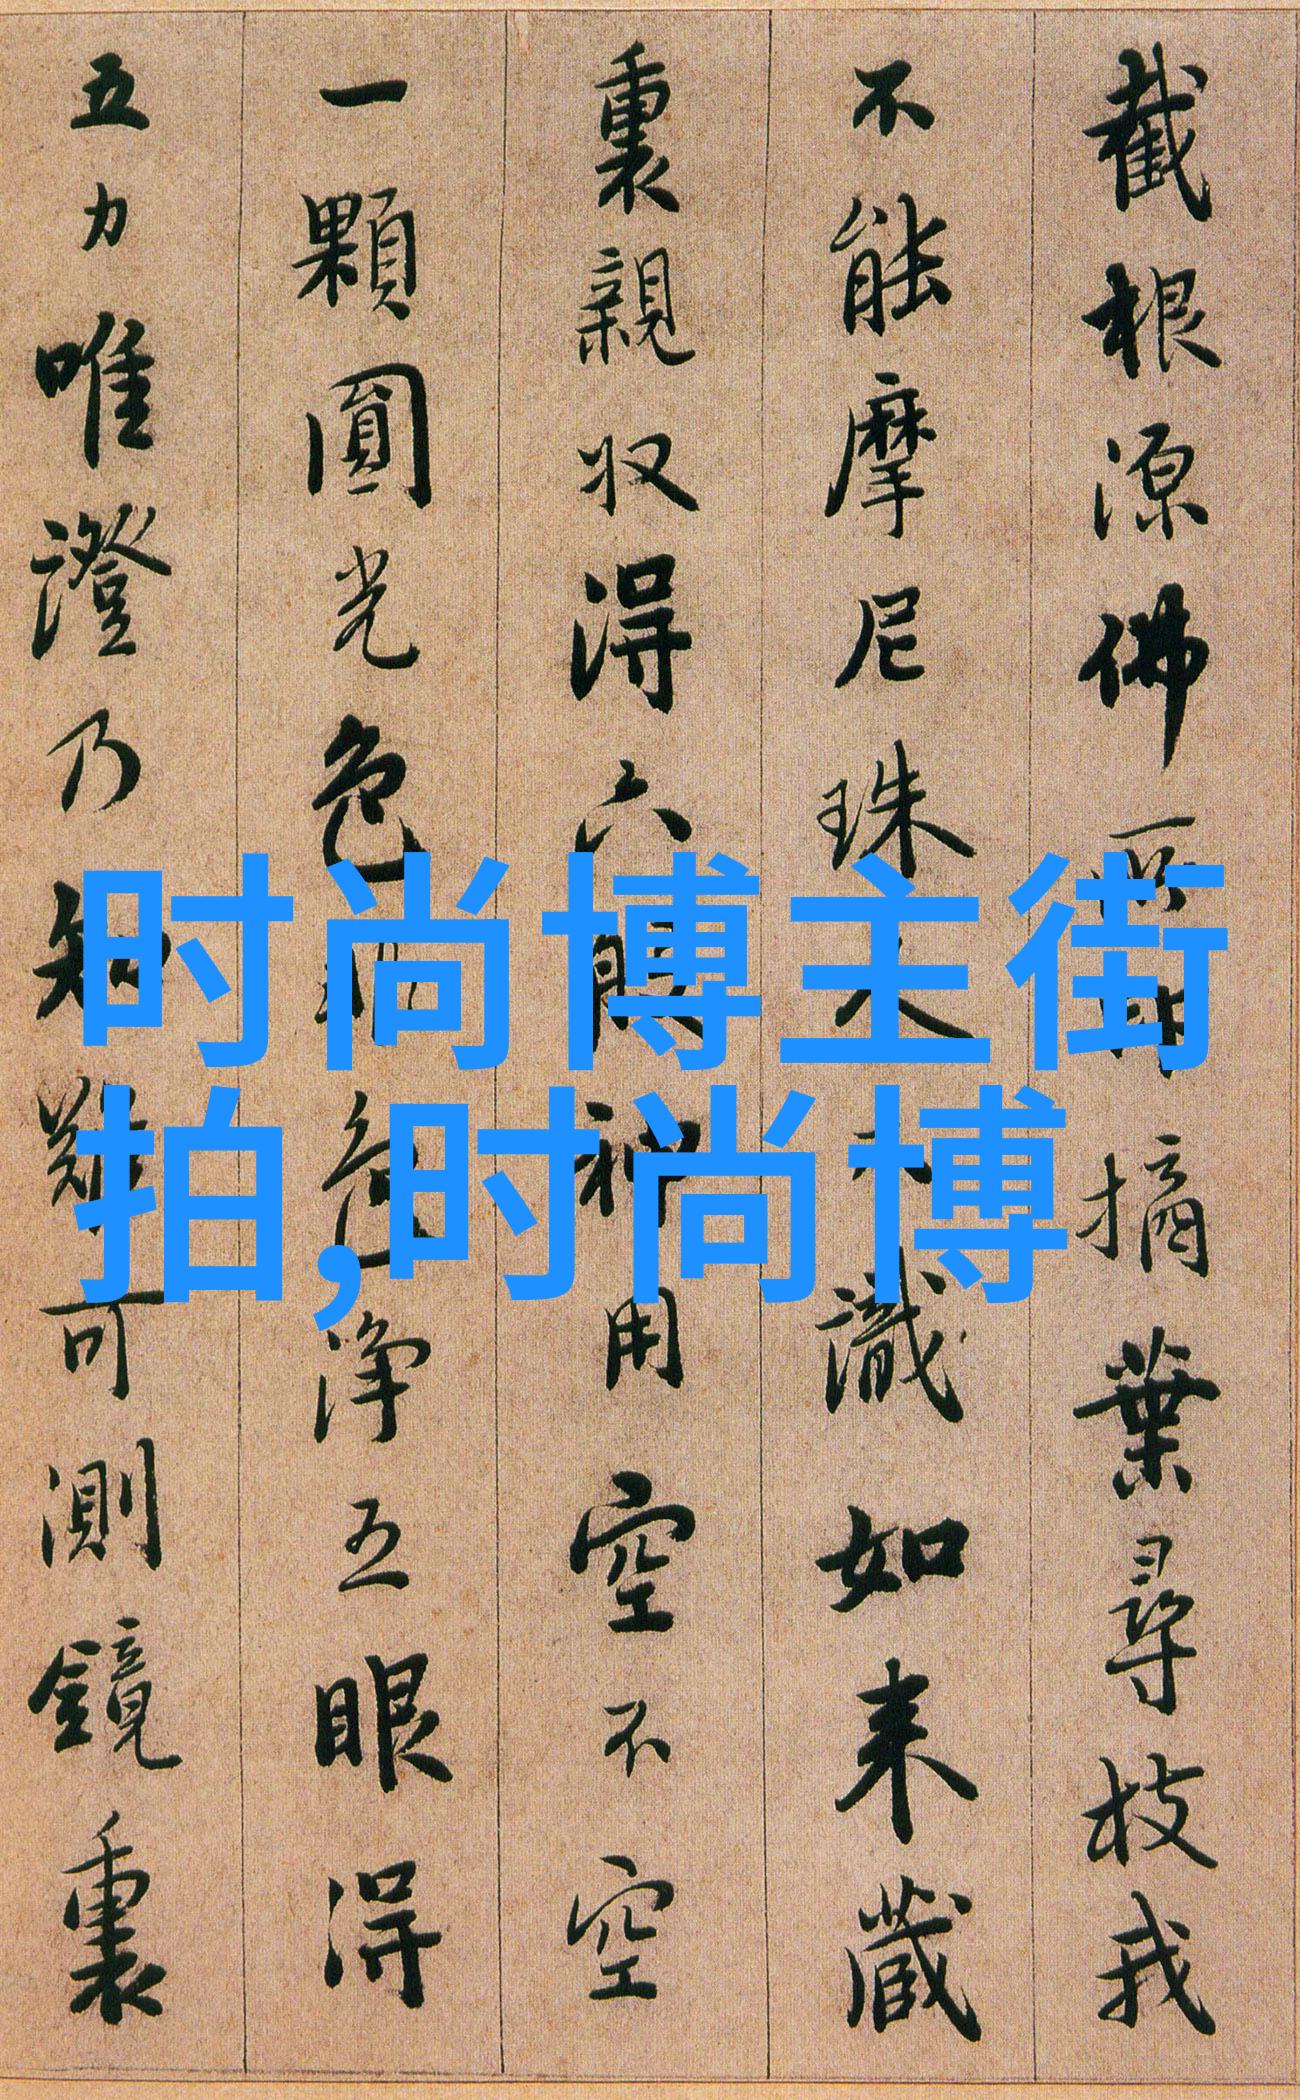 截根源佛所印摘葉尋枝我
不能摩尼珠人不識如来藏
裏親収得六般神用空不空
一顆圓光色非色净五眼得
五力唯證乃知難可測鏡裏
时尚博主街
拍,时尚博